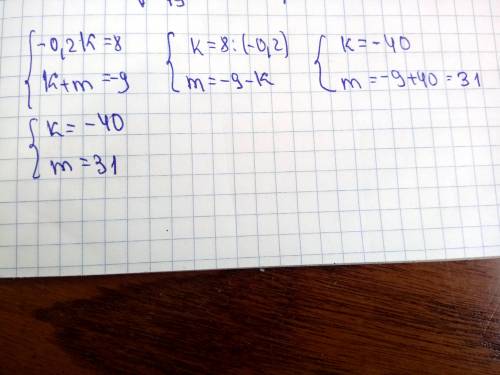 -0,2k=8
k+m=-9
k=8:(-0,2)
m=-9-k
k=-40
m=-9+40=31
k=-40
m=31